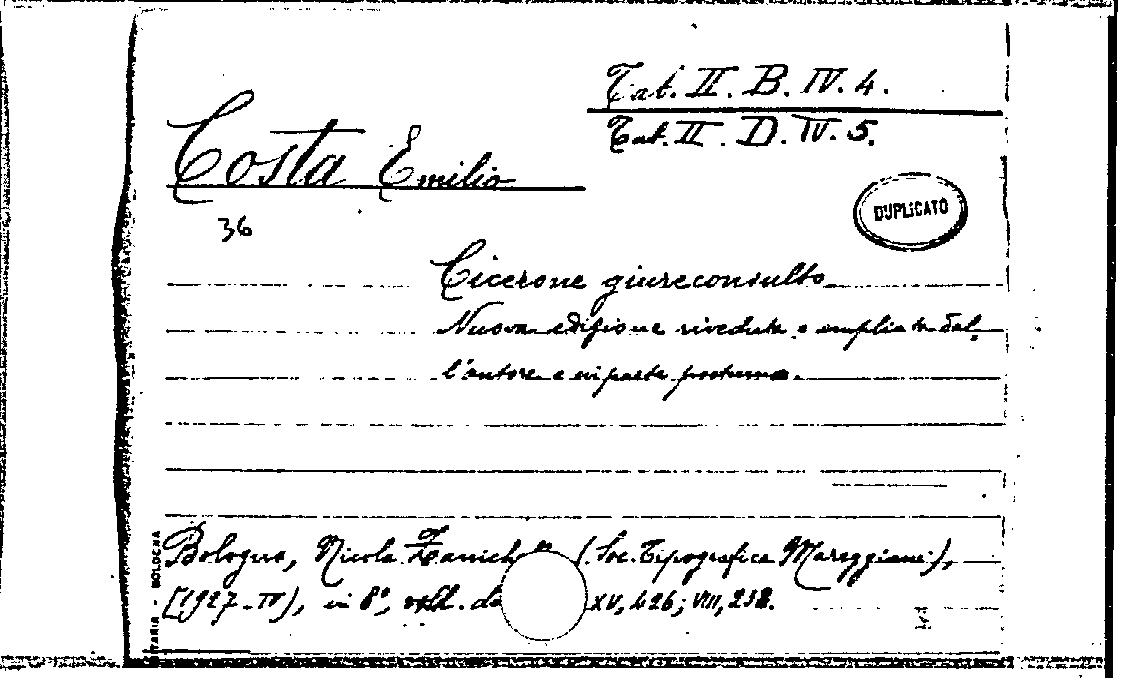 Tat. II. B. IV. 4.
Tat. II. D. IV. 5.
Costa Emilio
36
DUPLICATO
Cicerone giureconsulto
Nuova edizione riveduta e ampliata dal-
l'autore e in parte postuma.
Bologna, Nicola Zanich (Soc. Tipografica Mareggiani),
[1927-IV), in 8°, voll. due XV, 426; VIII, 238.
TARIA - BOLOGNA